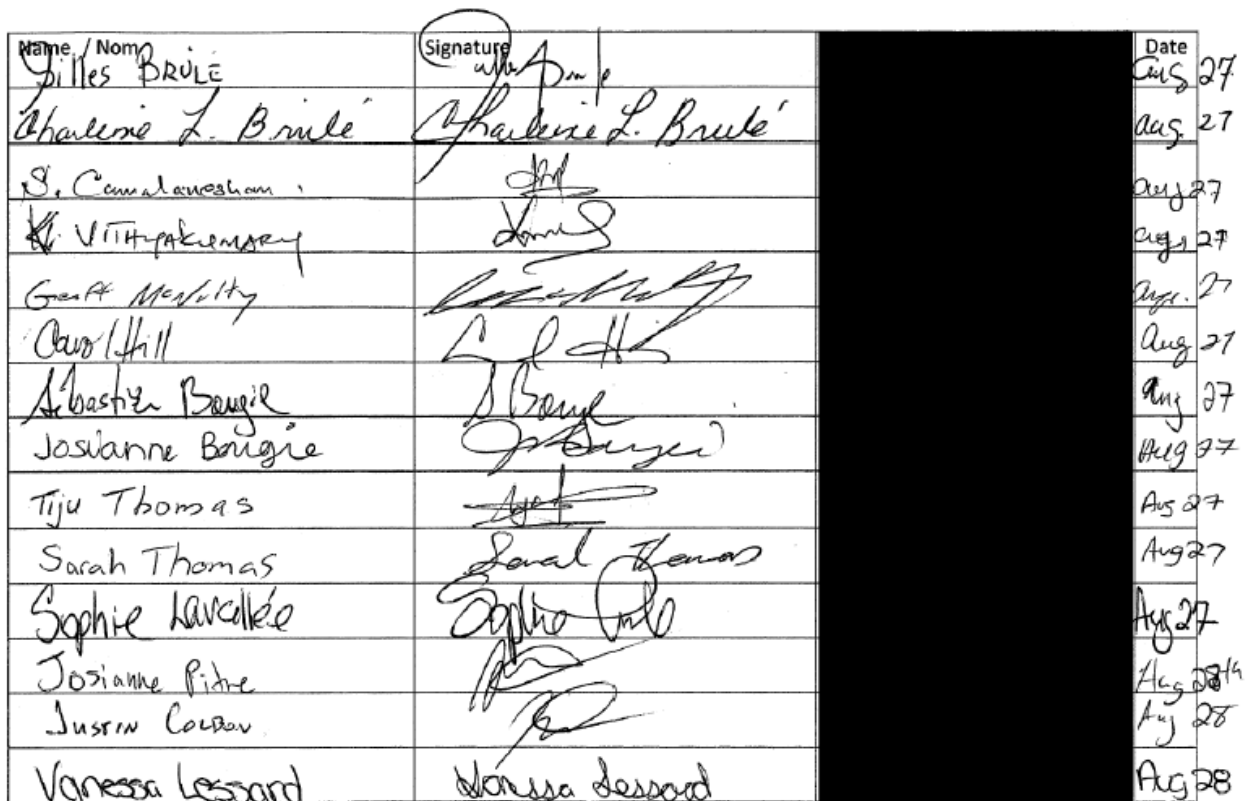 Name / Nom Signature Date
Gilles BRÛLÉ Aug 27
Charlene L. Brulé Charlene L. Brulé Aug. 27
S. Camalaneshan Aug 27
K. VITHYAKUMARY Aug 27
Geoff McNulty Aug. 27
Carol Hill C Hi Aug 27
Sébastien Bougie S Bougie Aug 27
Josianne Bougie Aug 27
Tiju Thomas Aug 27
Sarah Thomas Sarah Thomas Aug 27
Sophie Lavallée Sophie Aug 27
Josianne Pitre Aug 28th
Justin Aug 28
Vanessa Lessard Vanessa Lessard Aug 28